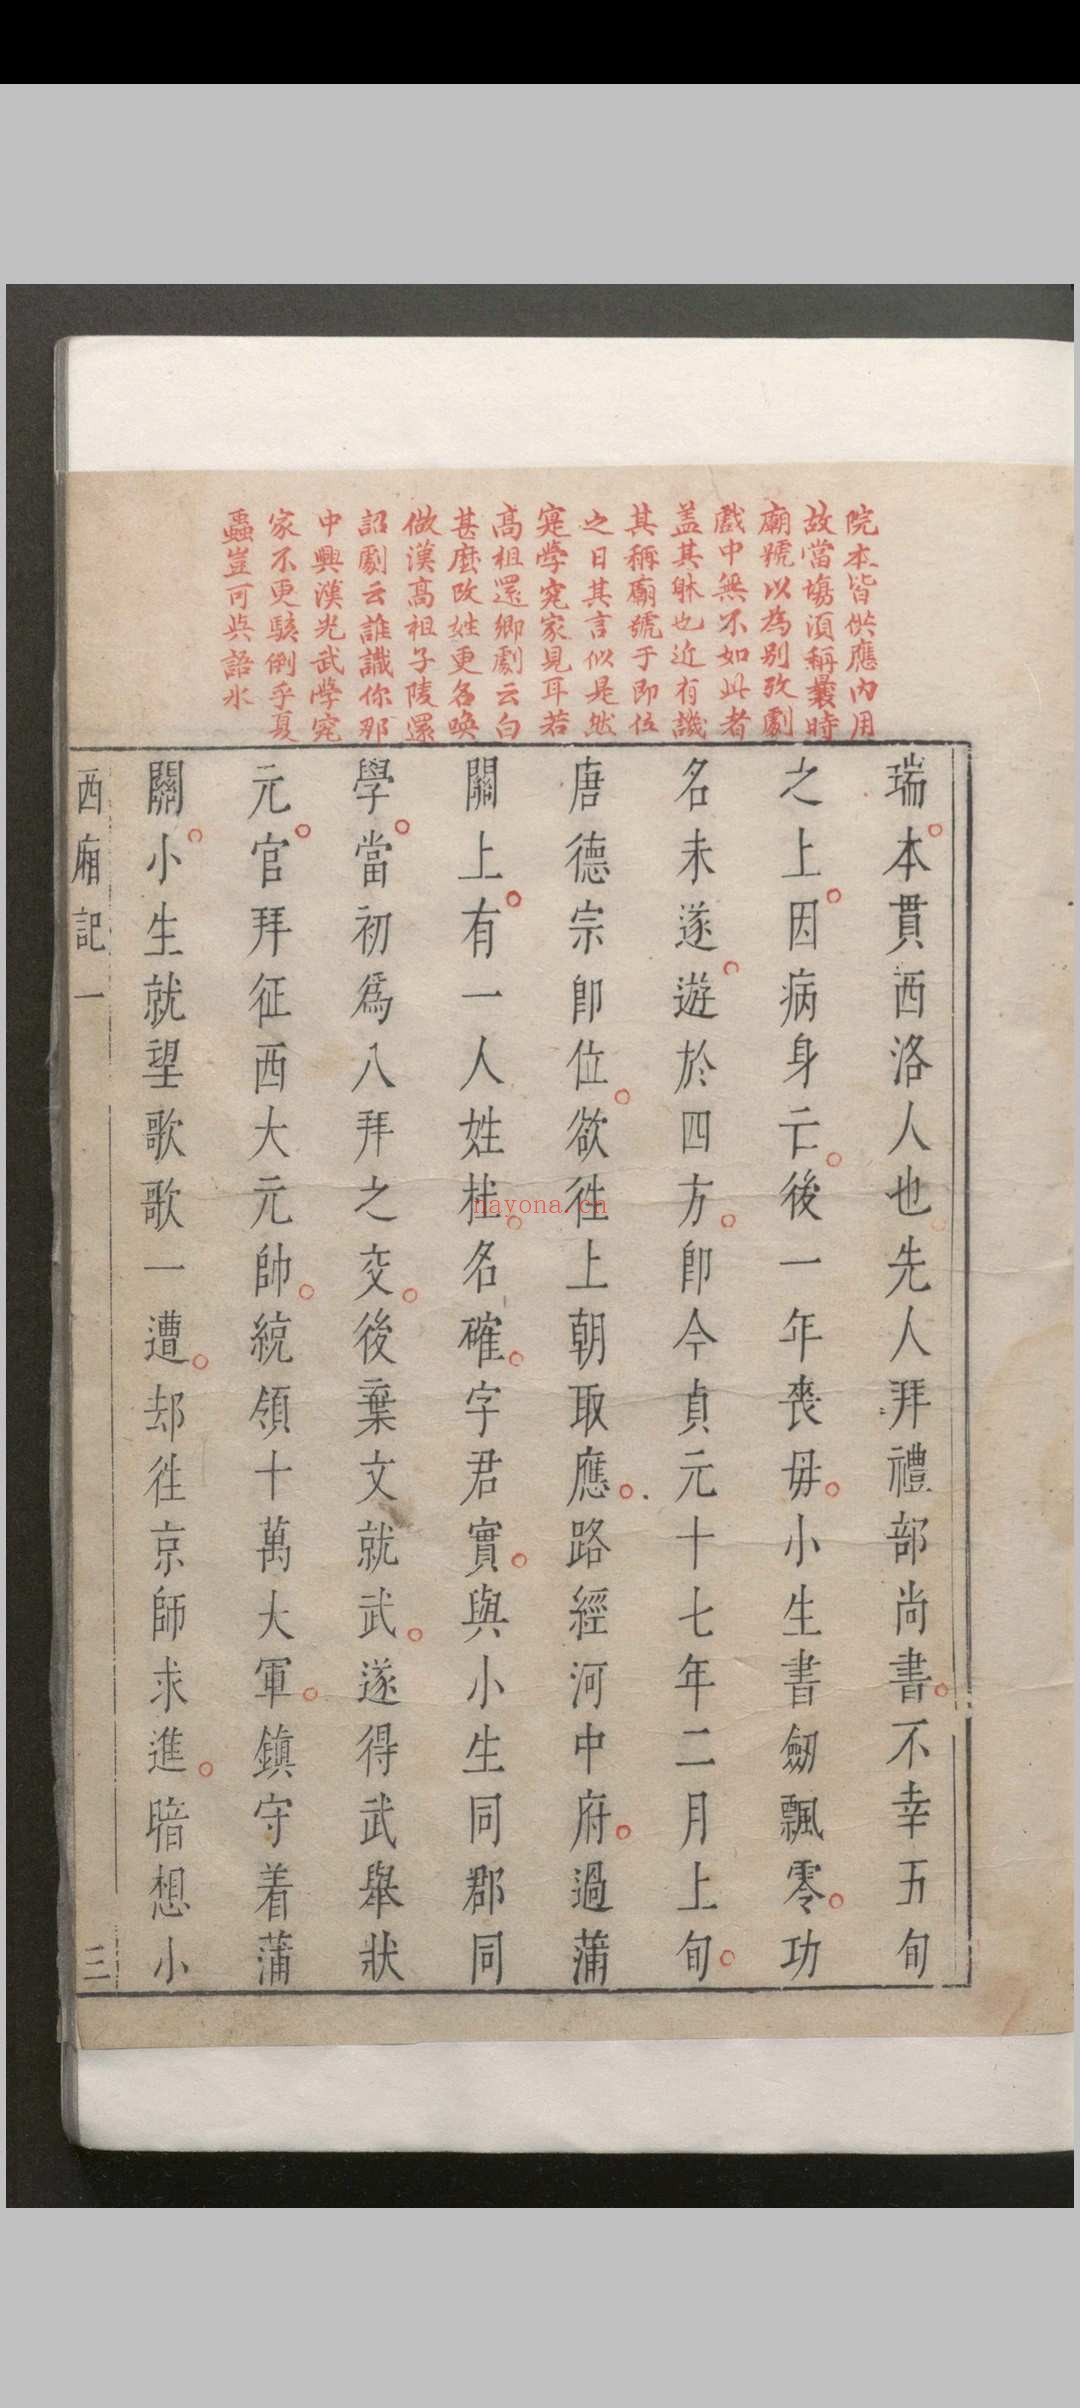 院本皆供應內用
故當塲須稱曩時
廟號以為别攷劇
戲中無不如此者
盖其體也近有譏
其稱廟號于即位
之日其言似是然
寔學究家見耳若
高祖還鄉劇云白
甚麽改姓更名喚
做漢高祖子陵還
詔劇云誰識你那
中興漢光武學究
家不更駭倒乎夏
蟲豈可與語氷
瑞本貫西洛人也先人拜禮部尚書不幸五旬
之上因病身亡後一年喪母小生書劒飄零功
名未遂遊於四方卽今貞元十七年二月上旬
唐德宗卽位欲徃上朝取應路經河中府過蒲
關上有一人姓杜名確字君實與小生同郡同
學當初爲八拜之交後棄文就武遂得武舉狀
元官拜征西大元帥統領十萬大軍鎮守着蒲
關小生就望歌歌一遭却徃京師求進暗想小
西廂記一
三
nayona.cn